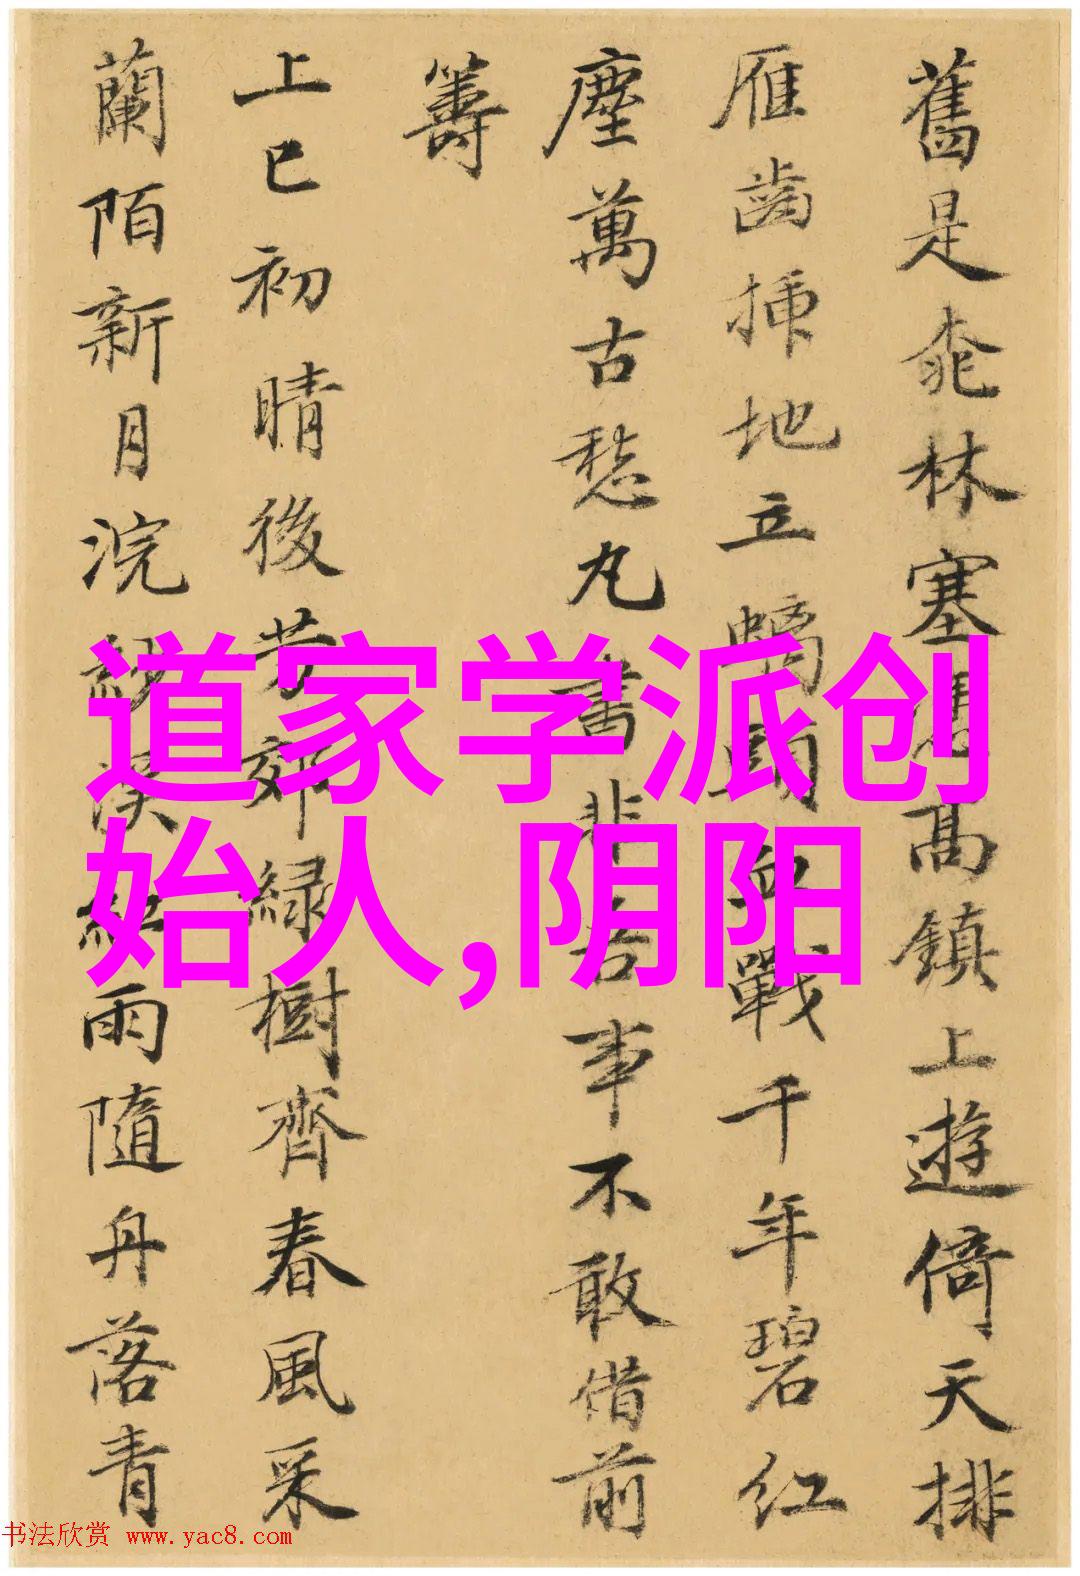 舊是桃林塞憑高鎮上遊倚天排
雁齒插地立螭頭血戰千年碧紅
塵萬古愁丸書非吾事不敢借前
籌
上巳初晴後芳郊綠樹齊春風采
蘭陌新月浣紗溪紅雨隨舟落青
道家学派创
始人,阴阳
书法欣赏 www.yac8.com